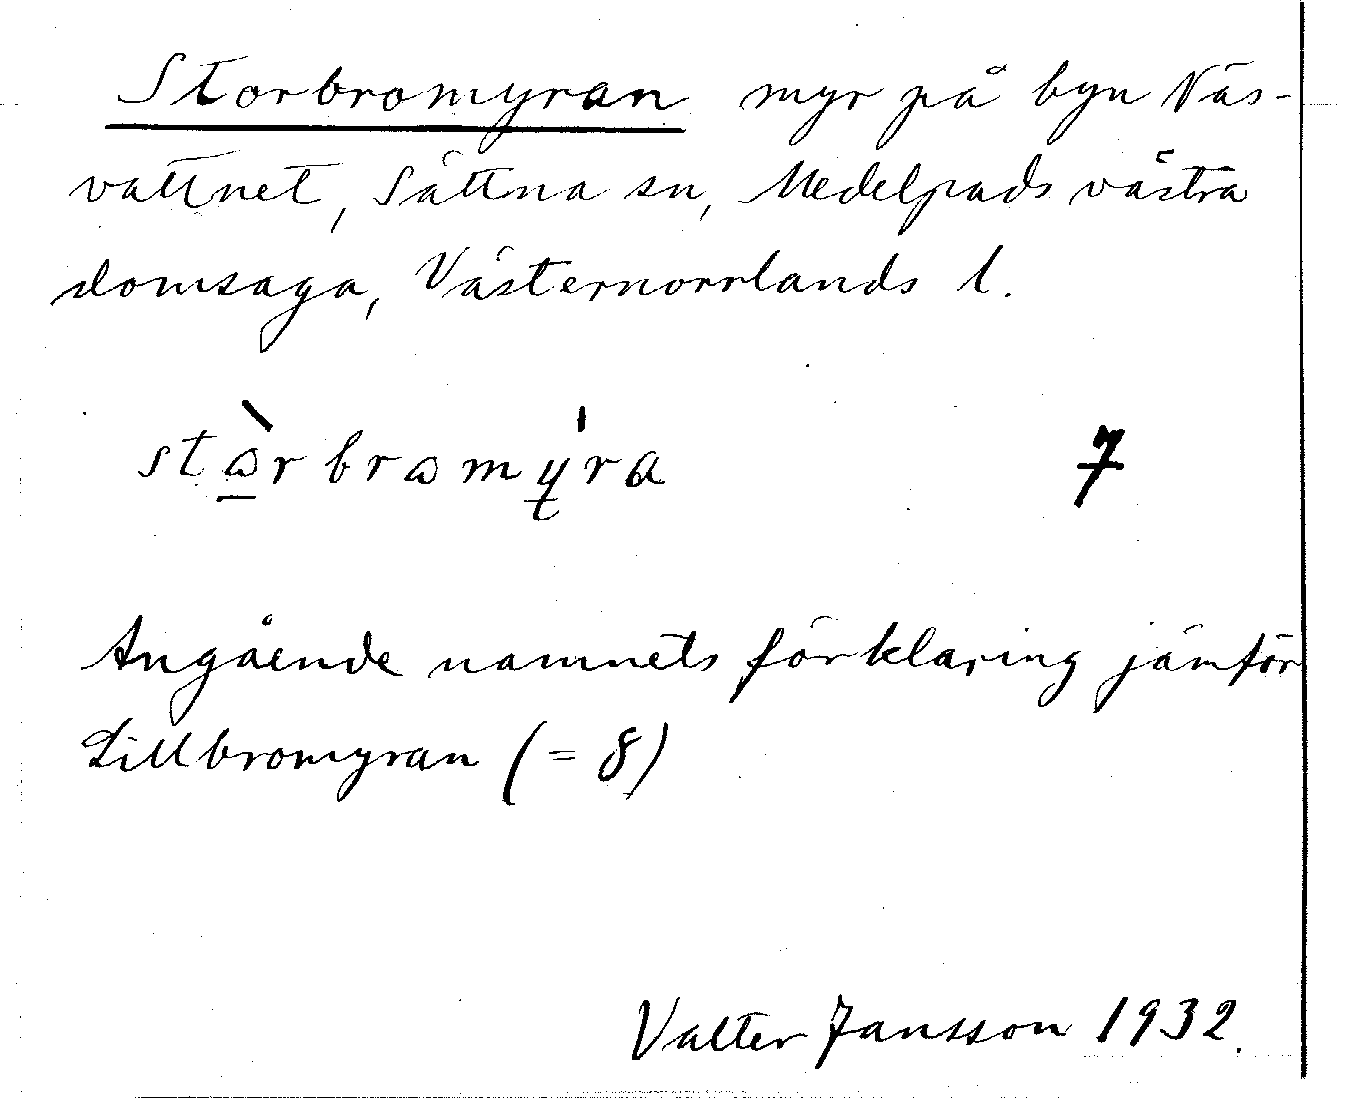 Storbromyran myr på byn Näs-
vattnet, Sättna sn, Medelpads västra
domsaga, Västernorrlands l.
stɷ̀rbrɷmýra 7
Angående namnets förklaring jämför
Lillbromyran (= 8)
Valter Jansson 1932.